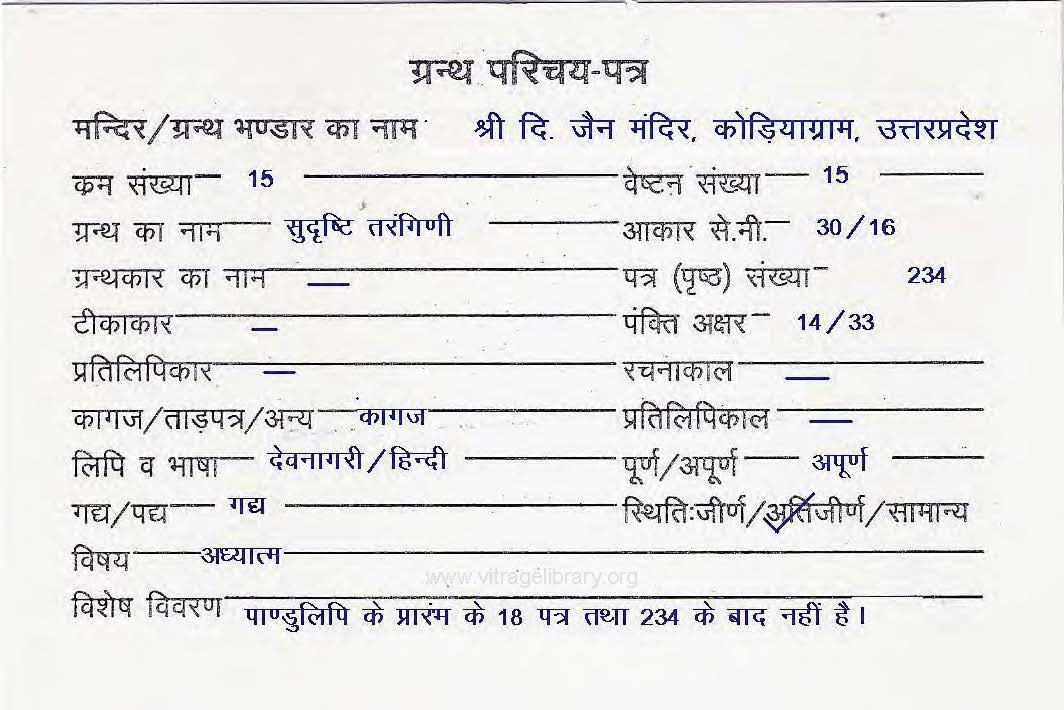 ग्रन्थ परिचय-पत्र
मन्दिर/ग्रन्थ भण्डार का नाम श्री दि. जैन मंदिर, कोड़ियाग्राम, उत्तरप्रदेश
कम संख्या 15 वेष्टन संख्या 15
ग्रन्थ का नाम सुदृष्टि तरंगिणी आकार से.मी. 30/16
ग्रन्थकार का नाम — पत्र (पृष्ठ) संख्या 234
टीकाकार — पंक्ति अक्षर 14/33
प्रतिलिपिकार — रचनाकाल —
कागज/ताड़पत्र/अन्य कागज प्रतिलिपिकाल —
लिपि व भाषा देवनागरी/हिन्दी पूर्ण/अपूर्ण अपूर्ण
गद्य/पद्य गद्य स्थितिःजीर्ण/अतिजीर्ण/सामान्य
विषय अध्यात्म
www.vitragelibrary.org
विशेष विवरण पाण्डुलिपि के प्रारंम के 18 पत्र तथा 234 के बाद नहीं है।